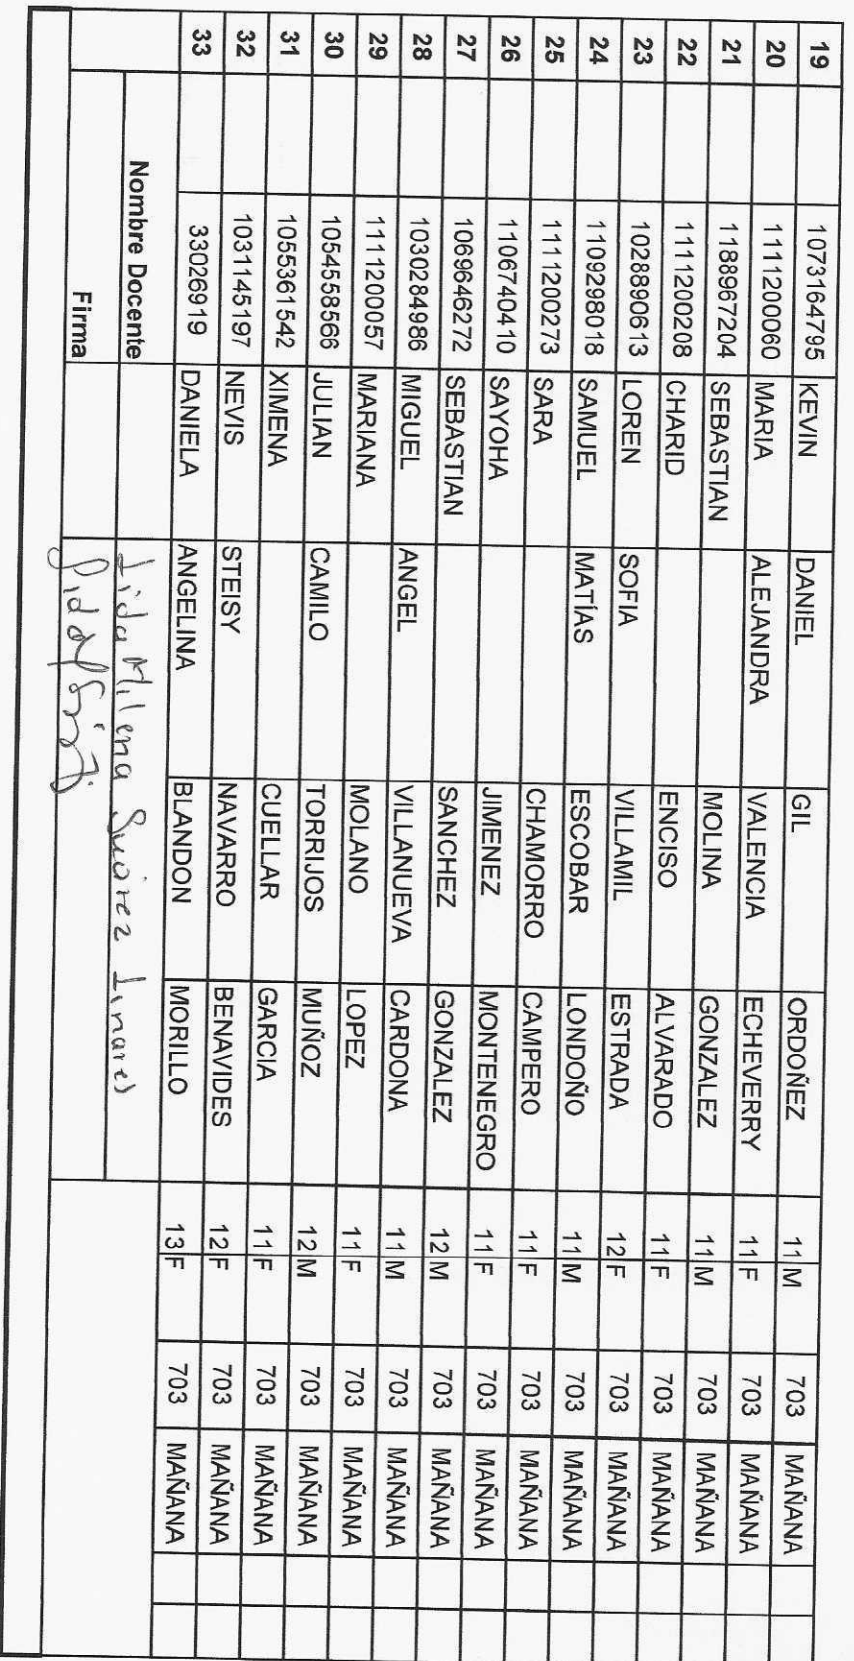 19 1073164795 KEVIN DANIEL GIL ORDOÑEZ 11 M 703 MAÑANA
20 1111200060 MARIA ALEJANDRA VALENCIA ECHEVERRY 11 F 703 MAÑANA
21 1188967204 SEBASTIAN MOLINA GONZALEZ 11 M 703 MAÑANA
22 1111200208 CHARID ENCISO ALVARADO 11 F 703 MAÑANA
23 1028890613 LOREN SOFIA VILLAMIL ESTRADA 12 F 703 MAÑANA
24 1109298018 SAMUEL MATÍAS ESCOBAR LONDOÑO 11 M 703 MAÑANA
25 1111200273 SARA CHAMORRO CAMPERO 11 F 703 MAÑANA
26 1106740410 SAYOHA JIMENEZ MONTENEGRO 11 F 703 MAÑANA
27 1069646272 SEBASTIAN SANCHEZ GONZALEZ 12 M 703 MAÑANA
28 1030284986 MIGUEL ANGEL VILLANUEVA CARDONA 11 M 703 MAÑANA
29 1111200057 MARIANA MOLANO LOPEZ 11 F 703 MAÑANA
30 1054558566 JULIAN CAMILO TORRIJOS MUÑOZ 12 M 703 MAÑANA
31 1055361542 XIMENA CUELLAR GARCIA 11 F 703 MAÑANA
32 1031145197 NEVIS STEISY NAVARRO BENAVIDES 12 F 703 MAÑANA
33 33026919 DANIELA ANGELINA BLANDON MORILLO 13 F 703 MAÑANA
Nombre Docente Lida Milena Suárez Linares
Firma